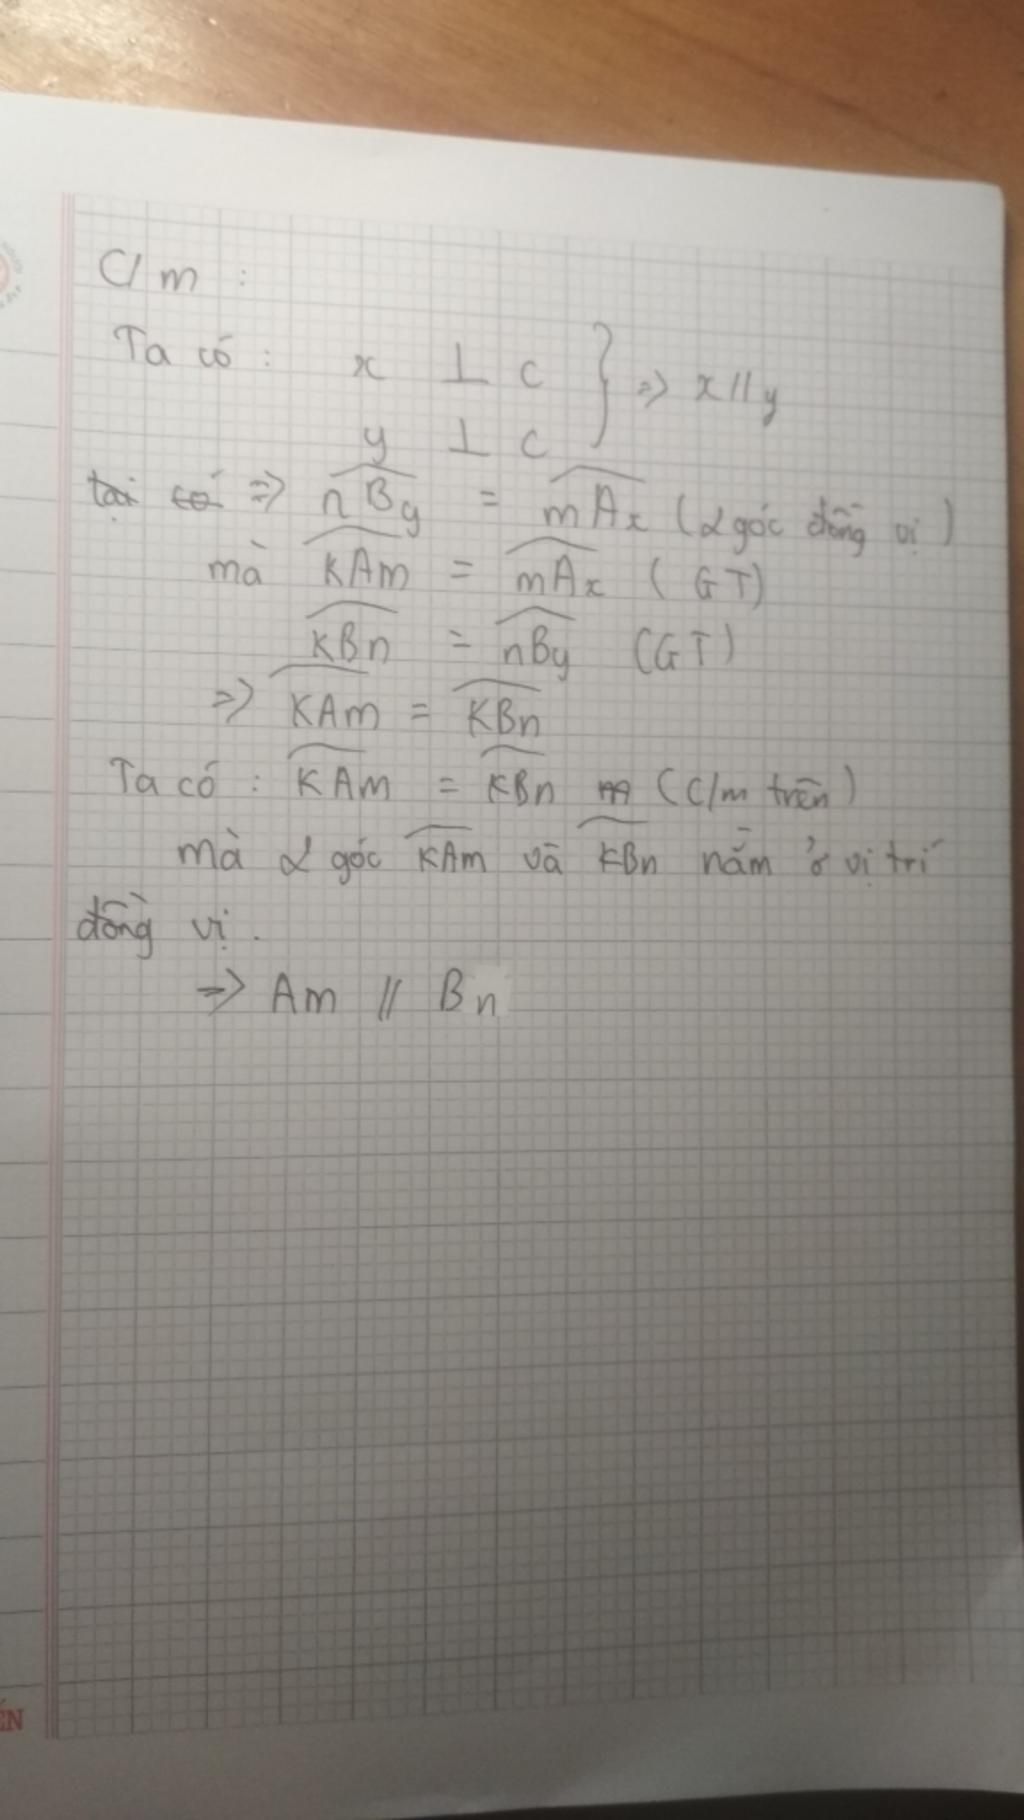 C/m :
Ta có : x ⊥ c } => x // y
y ⊥ c
tại có => nBy = mAx (2 góc đồng vị)
mà KAm = mAx (GT)
KBn = nBy (GT)
=> KAm = KBn
Ta có : KAm = KBn m (C/m trên)
mà 2 góc KAm và KBn nằm ở vị trí
đồng vị .
=> Am // Bn
ẾN